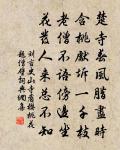 楚寺春風臘盡時
含桃坼一千枝
老僧不語傍邊坐
花發人來總不知
劉言史山寺看櫻桃花
題僧壁詞典網集